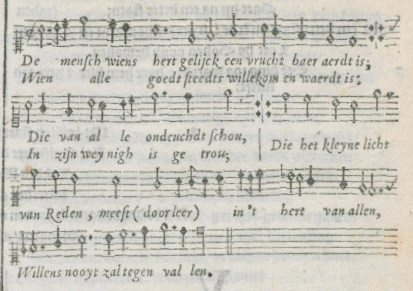 De mensch wiens hert gelijck een vrucht baer aerdt is;
Wien alle goedt steedts willekom en waerdt is:
Die van al le ondeuchdt schou,
In zijn wey nigh is ge trou;
Die het kleyne licht
van Reden, meest (door leer) in 't hert van allen,
Willens nooyt zal tegen val len.